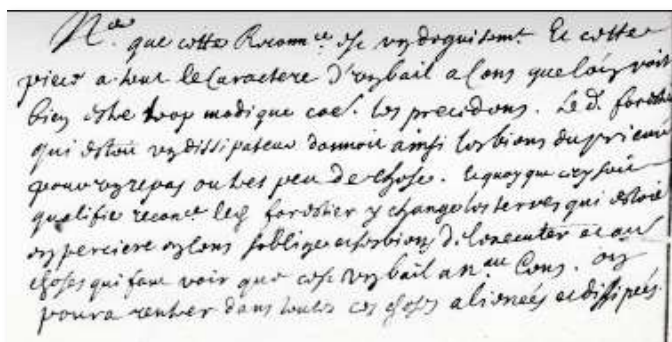 N.ta que cette Reconn.ce est un deguisemt. Et cette
piece a tout le Caractere d'un bail a Cens que l'on voit
bien estre trop modique coe les precedens. Le d. forestier
qui estoit un dissipateur donnoit ainsi les biens du prieuré
pour un repas ou tres peu de chose. Et quoy que cecy soit
qualifie reconce led forestier y change les terres qui estoient
en perciere en Cens s'oblige et ses biens de l'executer et au
choses qui font voir que c'est un bail a nau Cens. On
poura rentrer dans toutes ces choses alienées et dissipées.